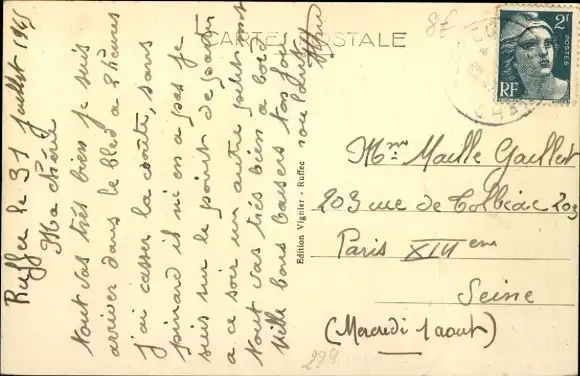 CARTE POSTALE
8€
2F
POSTES
RF
Ruffec le 31 Juillet 1945
Ma chérie
tout vas très bien je suis
arriver dans le bled a 8 heures
j'ai casser la croûte, sans
pinard il ni en a pas je
suis sur le point de partir
a ce soir un autre petit mot
tout vas très bien a bord
Mille bons baisers ton Jo
Edition Vignier - Ruffec
Mme Maille Gaillet
203 rue de Tolbiac 203
Paris XIII eme
Seine
(Mercredi 1 aout)
299